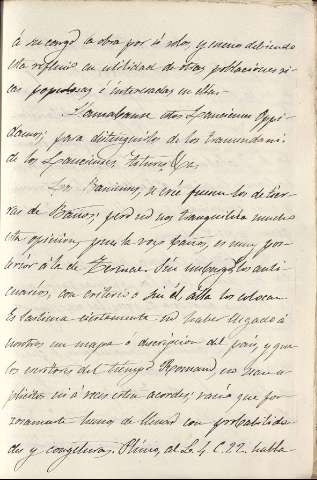 á su cargo la obra por sí solos, y como debiendo
esta refluir en utilidad de otras poblaciones ri-
cas populosas é interesadas en ellas.
Llamabanse estos Lancienses Oppi-
danos; para distinguirlos de los transcudani
de los Lancienses,
Los Banienses, se cree fueron los de tier-
ras de Baños; pero no nos tranquiliza mucho
esta opinion, pues la voz baños, es muy pos-
terior á la de Termae. Sin embargo los anti-
cuarios, con criterio ó sin él, allá los colocan.
Es lastima ciertamente no haber llegado á
nosotros un mapa ó descripcion del país, y que
los escritores del tiempo Romano, no sean es-
plicitos ni á veces esten acordes; razon que for-
zosamente hemos de llenar con probabilida-
des y congeturas. Plinio, al L. 4 C. 22. habla